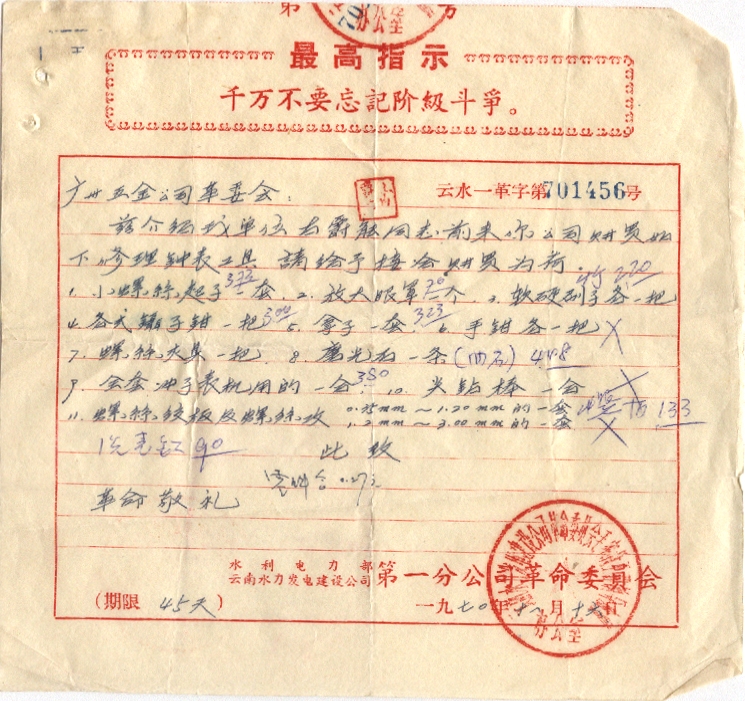 第 号
办公室
最高指示
千万不要忘记阶級斗爭。
云水一革字第701456号
广州五金公司革委会：
兹介绍我单位 同志前来你公司购买如
下修理钟表工具 請给予接洽购买为荷.
1. 小螺絲起子一套. 2. 放大眼罩一个 3. 软硬刷子各一把
4. 各式镊子钳一把 5. 盒子一套. 6. 手钳各一把
7. 螺絲夹具一把. 8. 磨光石一条(油石) 4.48
9. 全套冲子表机用的一盒 380 10. 尖钻棒一盒
11. 螺絲绞板及螺絲攻 0.35mm～1.20mm的一套 133
1.2mm～3.00mm的一套
90 此致
革命敬礼
水利电力部第
云南水力发电建设公司第一分公司革命委員会
(期限 45天) 一九七〇年 月十 日
办公室